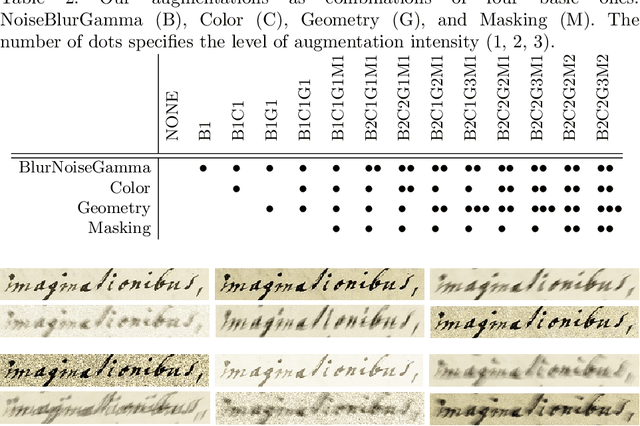 Table 2: Our augmentations as combinations of four basic ones:
NoiseBlurGamma (B), Color (C), Geometry (G), and Masking (M). The
number of dots specifies the level of augmentation intensity (1, 2, 3).
NONE B1 B1C1 B1G1 B1C1G1 B1C1G1M1 B2C1G1M1 B2C2G1M1 B2C1G2M1 B2C1G3M1 B2C2G2M1 B2C2G3M1 B2C2G2M2 B2C2G3M2
BlurNoiseGamma • • • • • •• •• •• •• •• •• •• ••
Color • • • • •• • • •• •• •• ••
Geometry • • • • • •• ••• •• ••• •• •••
Masking • • • • • • • •• ••
imaginationibus, imaginationibus, imaginationibus,
imaginationibus, imaginationibus, imaginationibus,
imaginationibus, imaginationibus, imaginationibus,
imaginationibus, imaginationibus, imaginationibus,